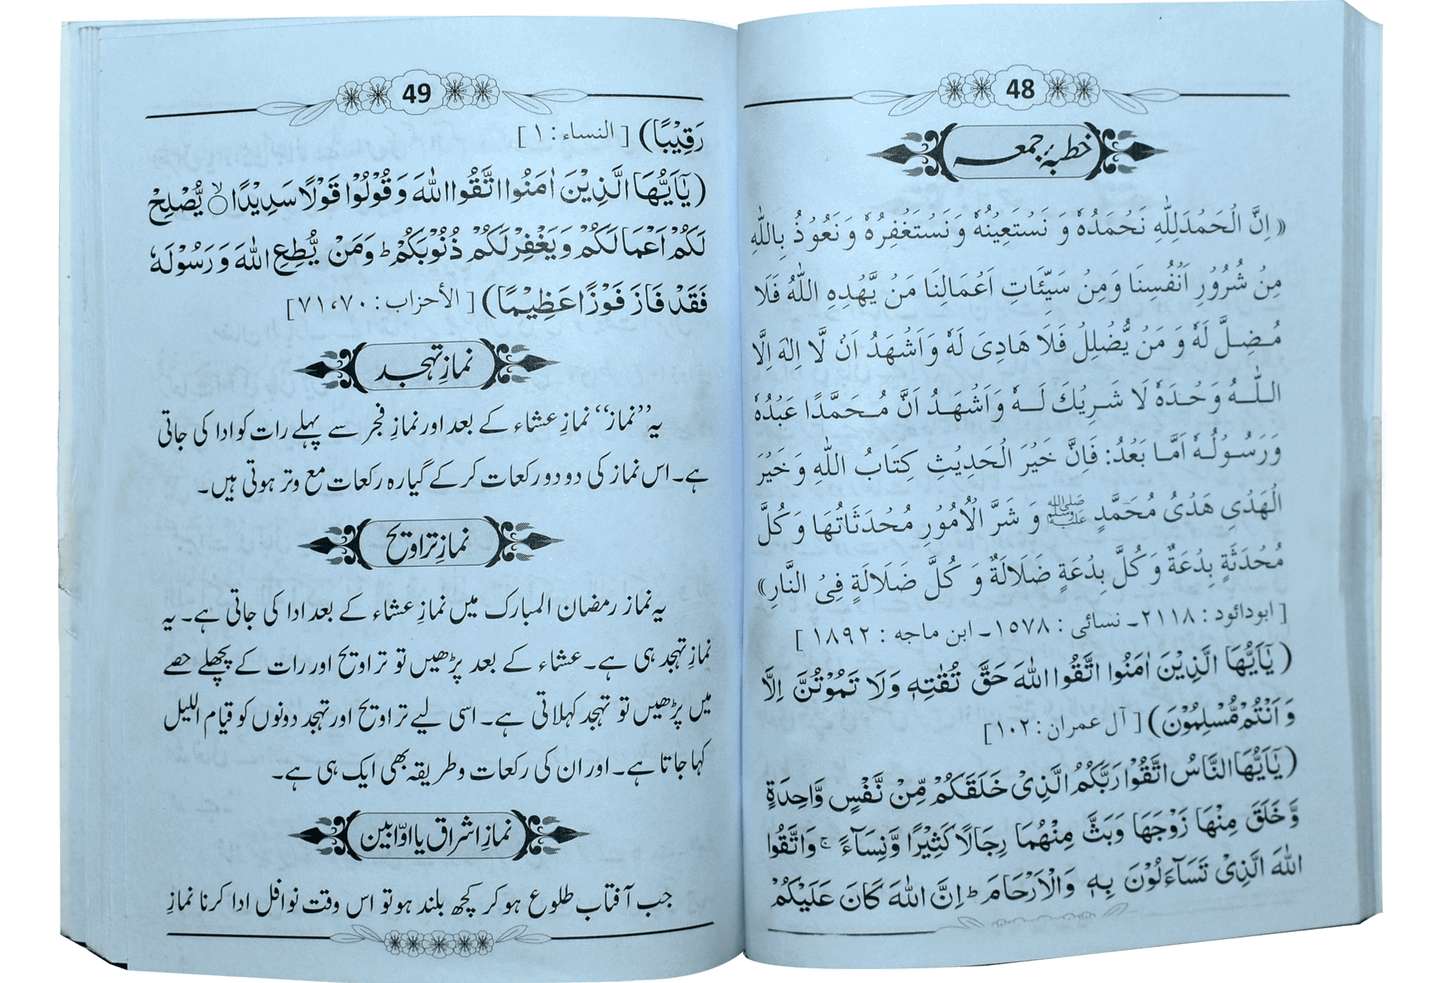 48
خطبۂ جمعہ
﴿ اِنَّ الْحَمْدَلِلّٰهِ نَحْمَدُهٗ وَ نَسْتَعِيْنُهٗ وَنَسْتَغْفِرُهٗ وَ نَعُوْذُ بِاللّٰهِ
مِنْ شُرُوْرِ اَنْفُسِنَا وَمِنْ سَيِّئَاتِ اَعْمَالِنَا مَنْ يَّهْدِهِ اللّٰهُ فَلَا
مُضِلَّ لَهٗ وَ مَنْ يُّضْلِلْ فَلَا هَادِىَ لَهٗ وَاَشْهَدُ اَنْ لَّا اِلٰهَ اِلَّا
اللّٰهُ وَحْدَهٗ لَا شَرِيْكَ لَهٗ وَاَشْهَدُ اَنَّ مُحَمَّدًا عَبْدُهٗ
وَرَسُوْلُهٗ اَمَّا بَعْدُ: فَاِنَّ خَيْرَ الْحَدِيْثِ كِتَابُ اللّٰهِ وَ خَيْرَ
الْهَدْىِ هَدْىُ مُحَمَّدٍ ﷺ وَ شَرَّ الْاُمُوْرِ مُحْدَثَاتُهَا وَ كُلَّ
مُحْدَثَةٍ بِدْعَةٌ وَ كُلَّ بِدْعَةٍ ضَلَالَةٌ وَ كُلَّ ضَلَالَةٍ فِى النَّارِ﴾
[ ابودائود : ۲۱۱۸۔ نسائی : ۱۵۷۸۔ ابن ماجه : ۱۸۹۲ ]
( يٰۤاَيُّهَا الَّذِيْنَ اٰمَنُوا اتَّقُوا اللّٰهَ حَقَّ تُقٰتِهٖ وَلَا تَمُوْتُنَّ اِلَّا
وَ اَنْتُمْ مُّسْلِمُوْنَ) [ آل عمران : ۱۰۲]
( يٰۤاَيُّهَا النَّاسُ اتَّقُوْا رَبَّكُمُ الَّذِىْ خَلَقَكُمْ مِّنْ نَّفْسٍ وَّاحِدَةٍ
وَّخَلَقَ مِنْهَا زَوْجَهَا وَبَثَّ مِنْهُمَا رِجَالًا كَثِيْرًا وَّنِسَآءً ۚ وَاتَّقُوا
اللّٰهَ الَّذِىْ تَسَآءَلُوْنَ بِهٖ وَالْاَرْحَامَ ؕ اِنَّ اللّٰهَ كَانَ عَلَيْكُمْ
49
رَقِيْبًا) [ النساء : ۱ ]
( يٰۤاَيُّهَا الَّذِيْنَ اٰمَنُوا اتَّقُوا اللّٰهَ وَ قُوْلُوْا قَوْلًا سَدِيْدًا ۙ يُّصْلِحْ
لَكُمْ اَعْمَالَكُمْ وَيَغْفِرْ لَكُمْ ذُنُوْبَكُمْ ؕ وَمَنْ يُّطِعِ اللّٰهَ وَ رَسُوْلَهٗ
فَقَدْ فَازَ فَوْزًا عَظِيْمًا) [ الأحزاب : ۷۱،۷۰]
نمازِ تہجد
یہ ”نماز“ نمازِ عشاء کے بعد اور نمازِ فجر سے پہلے رات کو ادا کی جاتی
ہے۔ اس نماز کی دو دو رکعات کر کے گیارہ رکعات مع وتر ہوتی ہیں۔
نمازِ تراویح
یہ نماز رمضان المبارک میں نمازِ عشاء کے بعد ادا کی جاتی ہے۔ یہ
نمازِ تہجد ہی ہے۔ عشاء کے بعد پڑھیں تو تراویح اور رات کے پچھلے حصے
میں پڑھیں تو تہجد کہلاتی ہے۔ اسی لیے تراویح اور تہجد دونوں کو قیام اللیل
کہا جاتا ہے۔ اور ان کی رکعات و طریقہ بھی ایک ہی ہے۔
نمازِ اشراق یا اوّابین
جب آفتاب طلوع ہو کر کچھ بلند ہو تو اس وقت نوافل ادا کرنا نمازِ